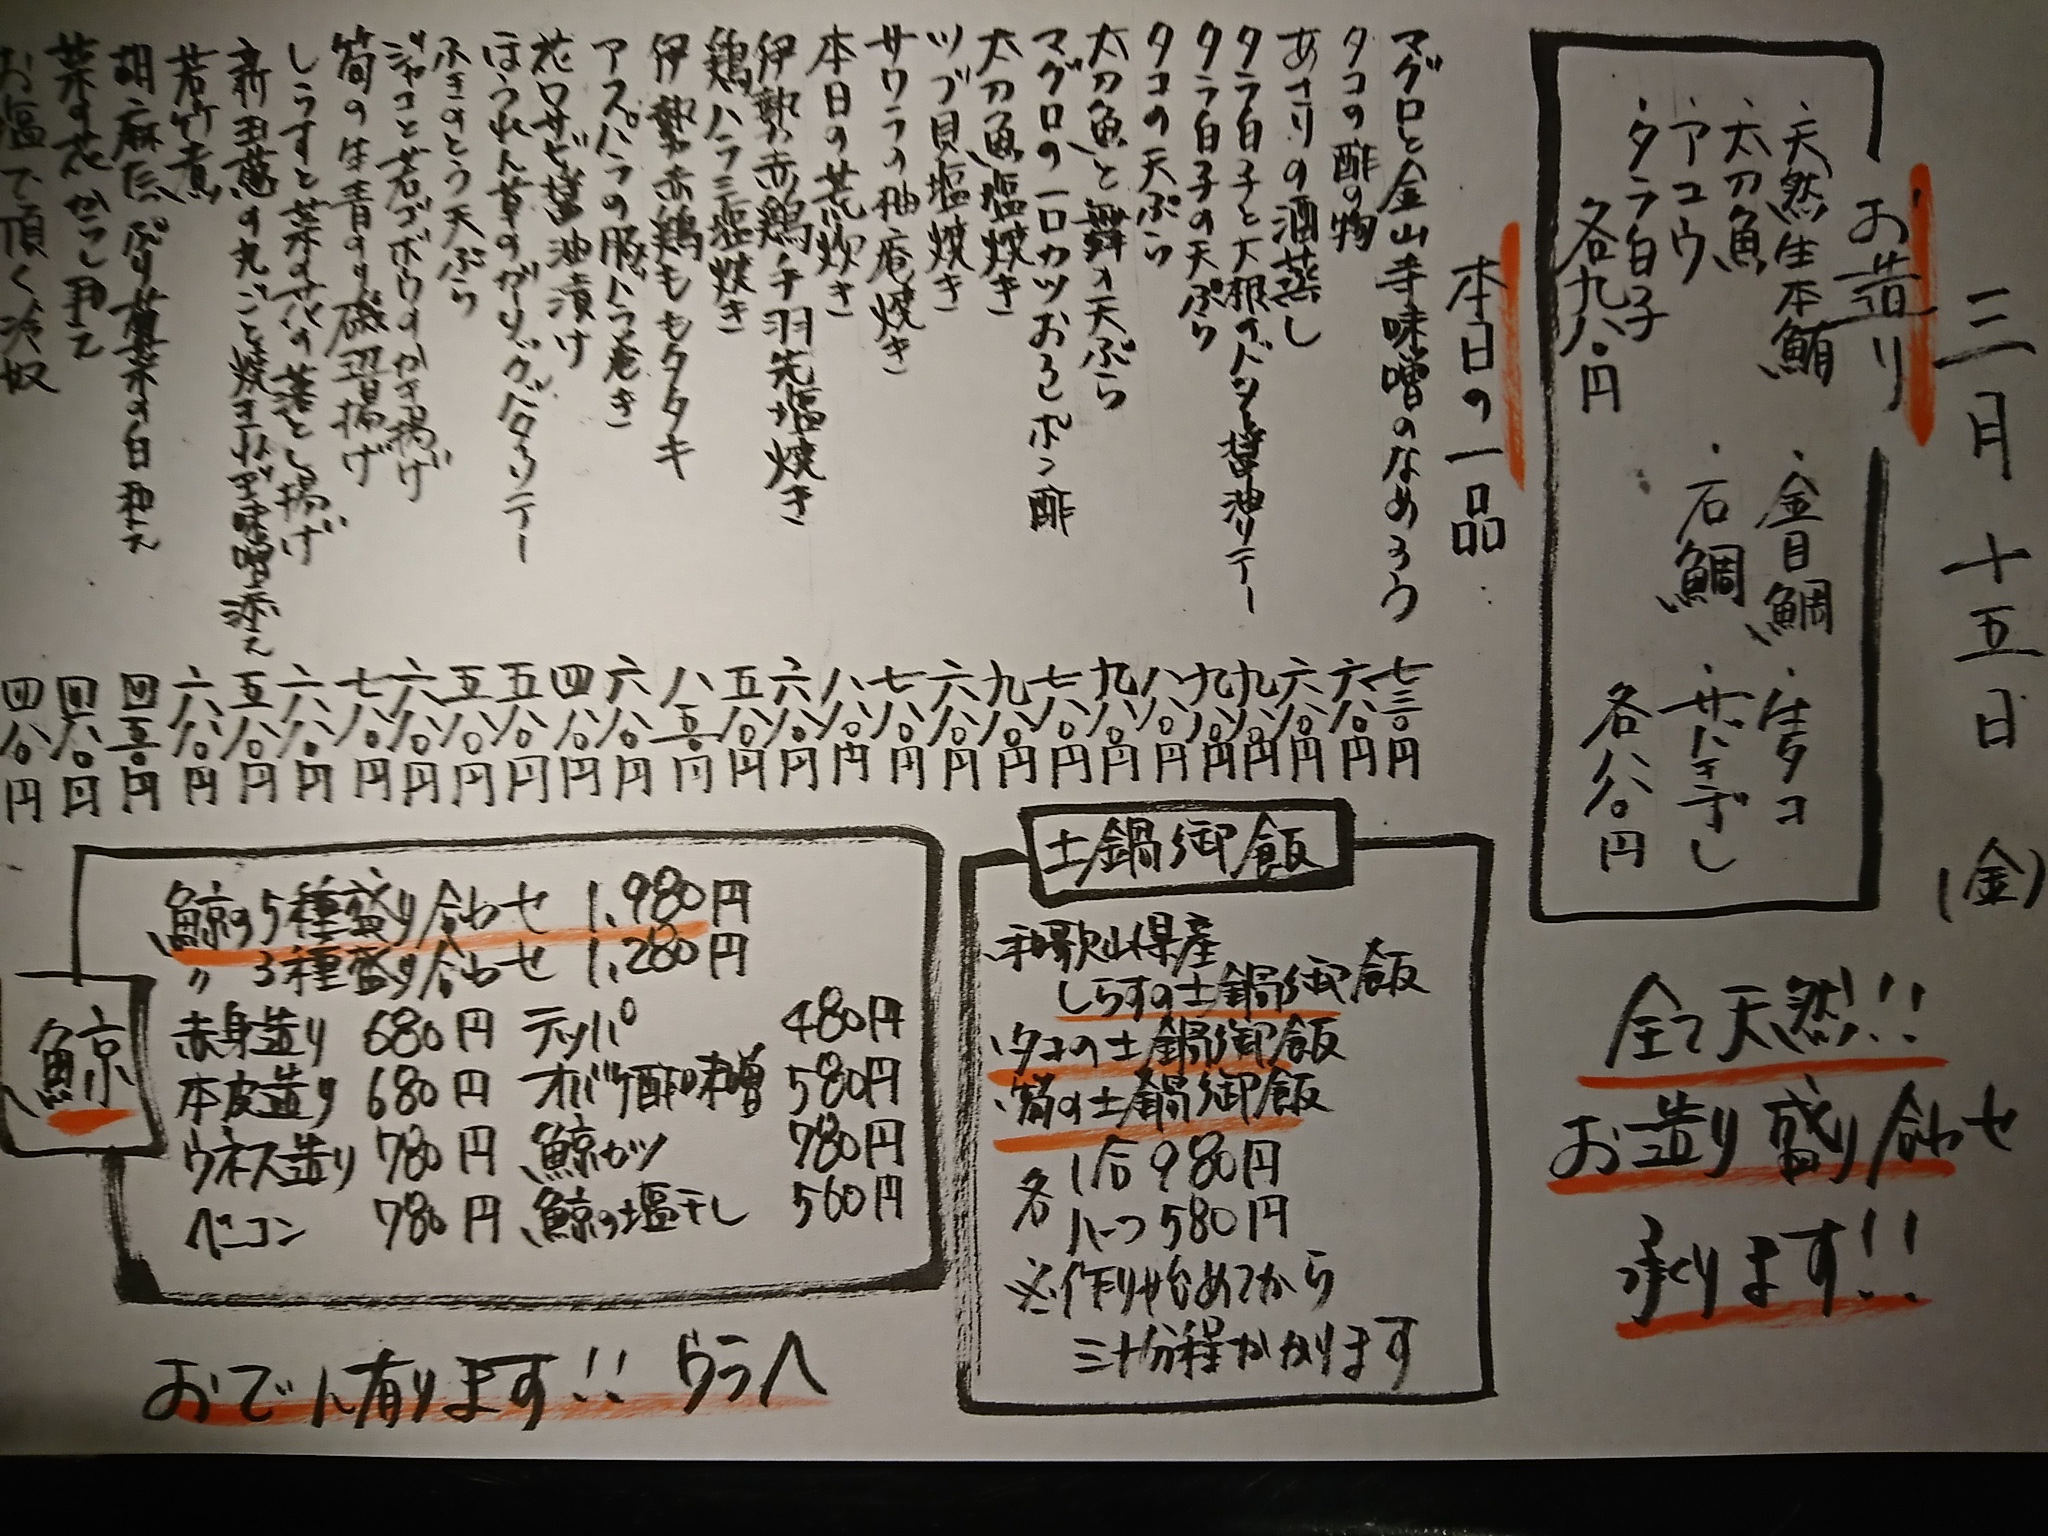 三月十五日(金)
お造り
・天然生本鮪
・太刀魚
・アコウ
・タラ白子
各九八〇円
・金目鯛
・石鯛
・生タコ
各八八〇円
全て天然!!
お造り盛り合わせ
承ります!!
本日の一品
マグロと金山寺味噌のなめろう 七三〇円
タコの酢の物 六八〇円
あさりの酒蒸し 六八〇円
タラ白子と大根のバター醤油ソテー 九八〇円
タラ白子の天ぷら 九八〇円
タコの天ぷら 八八〇円
太刀魚と舞の天ぷら 九八〇円
マグロの一口カツおろしポン酢 七八〇円
太刀魚塩焼き 九八〇円
ツブ貝塩焼き 六八〇円
サワラの柚庵焼き 七八〇円
本日の荒炊き 八八〇円
伊勢赤鶏手羽先塩焼き 六八〇円
鶏ハラミ塩焼き 五八〇円
伊勢赤鶏ももタタキ 八五〇円
アスパラの豚バラ巻き 六八〇円
花ワサビ醤油漬け 四八〇円
ほうれん草のガーリックバターソテー 五八〇円
ふきのとう天ぷら 五八〇円
ジャコと若ゴボウのかき揚げ 六八〇円
筍の生青のり磯辺揚げ 七八〇円
しらすと菜の花の落とし揚げ 六八〇円
新玉葱の丸ごと焼き 味噌添え 五八〇円
若竹煮 六八〇円
胡麻たっぷり 菜の白和え 四五〇円
菜の花からし和え 四八〇円
お塩で頂く冷奴 四八〇円
土鍋御飯
和歌山県産
しらすの土鍋御飯
タコの土鍋御飯
筍の土鍋御飯
各 1合980円
ハーフ580円
※作り始めてから
三十分程かかります
鯨
鯨の5種盛り合わせ 1,980円
〃 3種盛り合わせ 1,280円
赤身造り 680円 テッパ 480円
本皮造り 680円 オバケ酢味噌 580円
ウネス造り 780円 鯨カツ 780円
ベーコン 780円 鯨の塩干し 560円
おでん有ります!! ウラへ